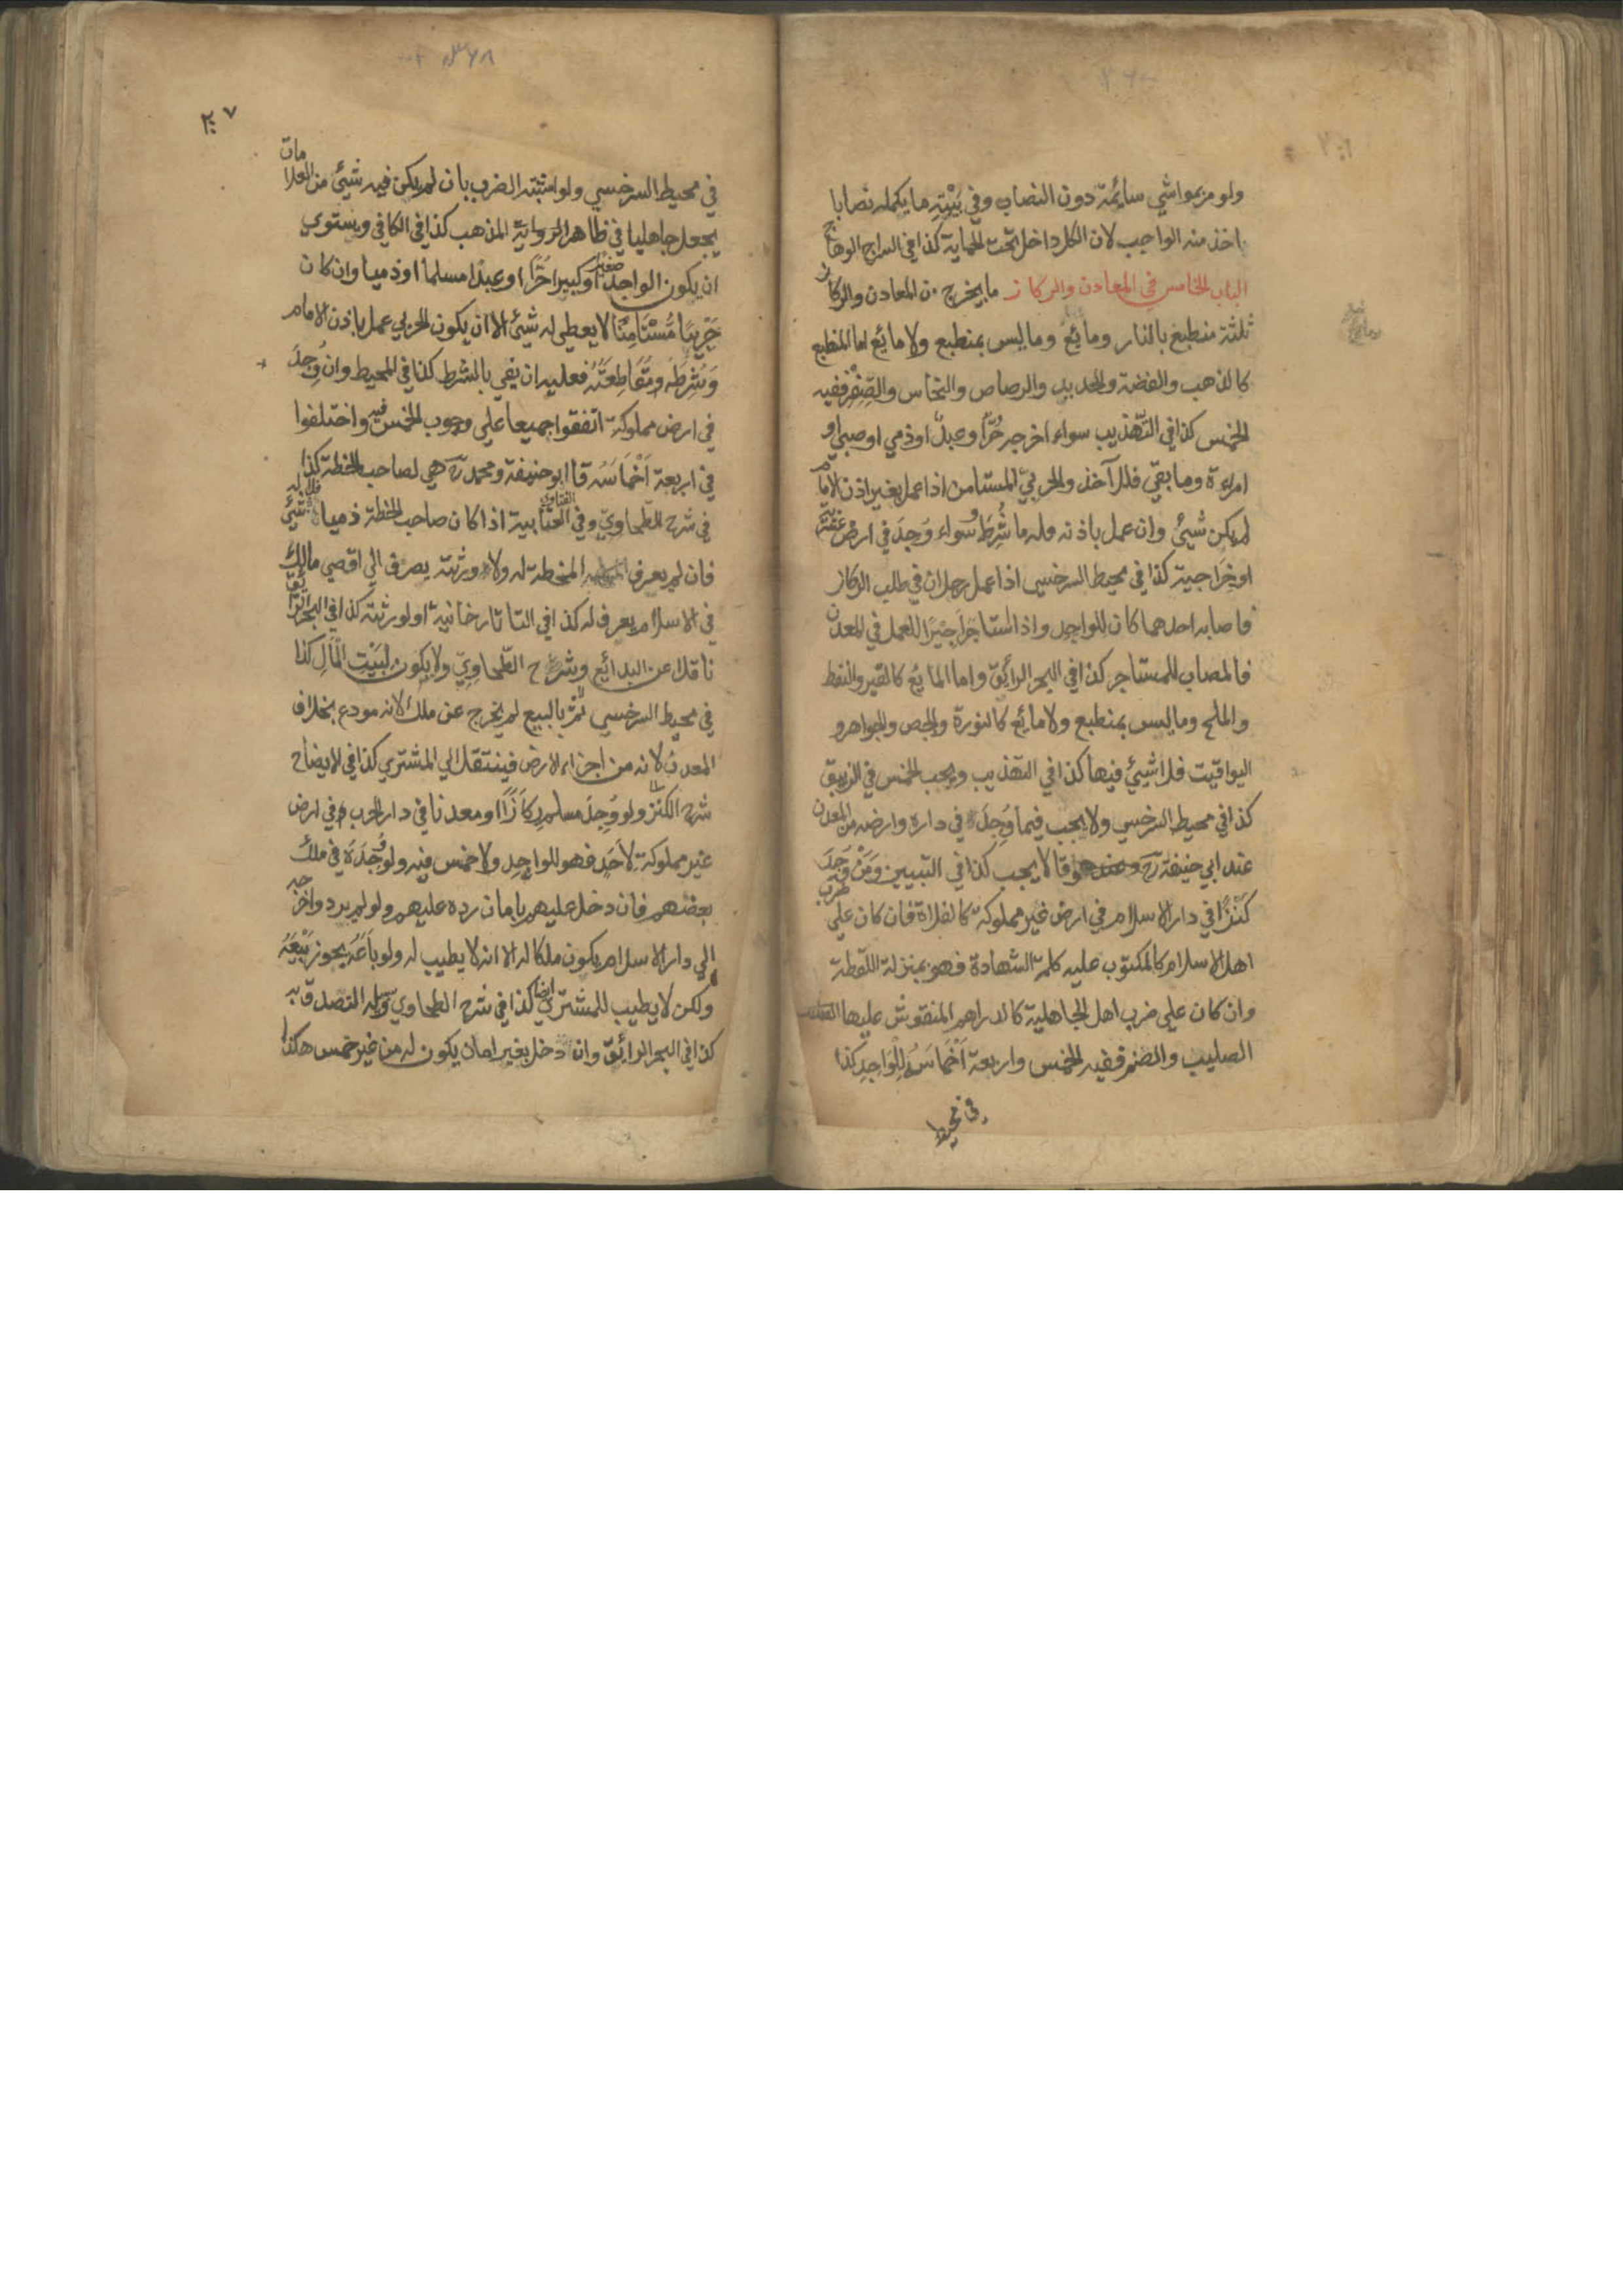 ولو مر بمواشي سائمة دون النصاب وفي بَيْتِهِ ما يكمله نصابا
اخذ منه الواجب لان الكل داخل تحت الحماية كذا في السراج الوهاج
الباب الخامس في المعادن والركاز ما يخرج من المعادن والركاز
ثلثة منطبع بالنار ومائع وما ليس بمنطبع ولا مائع اما المنطبع
كالذهب والفضة والحديد والرصاص والنحاس والصِّفْر ففيه
الخمس كذا في التهذيب سواء اخرجه حُرٌّ او عبدٌ او ذمي او صبي او
امرءة وما بقي فللآخذ والحربيّ المستامن اذا عمل بغير اذن الامام
لم يكن شيئ وان عمل باذنه فله ما شُرِطَ وسواء وَجِدَ في ارض عشرية
او خَراجية كذا في محيط السرخسي اذا عمل رجلان في طلب الركاز
فاصابه احدهما كان للواجد واذا استاجَرَ اَجِيْرًا للعمل في المعدن
فالمصاب للمستاجر كذا في البحر الرائق واما المائع كالقير والنفط
والملح وما ليس بمنطبع ولا مائع كالنورة والجص والجواهر و
اليواقيت فلا شيئ فيها كذا في التهذيب ويجب الخمس في الزيبق
كذا في محيط السرخسي ولا يجب فيما وُجِدَ في داره وارضه من المعدن
عند ابي حنيفة رح وقالا يجب كذا في التبيين وَمَنْ وَجَدَ
كَنْزًا في دار الاسلام في ارض غير مملوكة كالفلاة فان كان على ضرب
اهل الاسلام كالمكتوب عليه كلمة الشهادة فهو بمنزلة اللقطة
وان كان على ضرب اهل الجاهلية كالدراهم المنقوش عليها
الصليب والصنم ففيه الخمس واربعة اَخْمَاسَهُ لِلْوَاجِدِ كذا
في محيط
٢٠٧
في محيط السرخسي ولو اشتبه الضرب بان لم يكن فيه شيئ من العلامات
يجعل جاهليا في ظاهر الرواية المذهب كذا في الكافي ويستوي
ان يكون الواجد صغيرا او كبيرا حُرًّا او عبدًا مسلما او ذميا وان كان
حَرْبِيًا مُسْتَامِنًا لا يعطى له شيئ الا ان يكون الحربي عمل باذن الامام
وَشَرِطَهُ ومُقَاطِعَتُهُ فعليه ان يفي بالشرط كذا في المحيط وان وُجِدَ
في ارض مملوكة اتفقوا جميعا على وجوب الخمس فيه واختلفوا
في اربعة اَخْمَاسَهُ قا ابو حنيفة ومحمد رح هي لصاحب الخطة كذا
في شرح الطحاويّ وفي الفتاوي العتابية اذا كان صاحب الخطة ذميا فلا شيئ له
فان لم يعرف المخطة له ولا ورثته يصرف الى اقصى مالك
في الاسلام يعرف له كذا في التاتارخانية او لورثته كذا في البحر الرائق
ناقلا عن البدائع وشرح الطحاوِيّ ولا يكون لِبَيْتِ الْمَالِ كذا
في محيط السرخسي ثمَّ بالبيع لم يخرج عن ملك لانه مودع بخلاف
المعدن لانه من اجزاء الارض فينتقل الى المشتري كذا في الايضاح
شرح الكنز ولو وُجِدَ مسلم رِكَازًا او معدنا في دار الحرب في ارض
غير مملوكة لِاَحَدٍ فهو للواجِدِ ولا خمس فيه ولو وُجَدَهُ في ملك
بعضهم فان دخل عليهم بامان رده عليهم ولو لم يرد واخرجه
الى دار الاسلام يكون ملكا له الا انه لا يطيب له ولو باَعَهُ يجوز بَيْعَهُ
ولكن لا يطيب للمشتري ايضا كذا في شرح الطحاوي وسبيله التصدق به
كذا في البحر الرائق وان دخل بغير امان يكون له من غير خمس هكذا